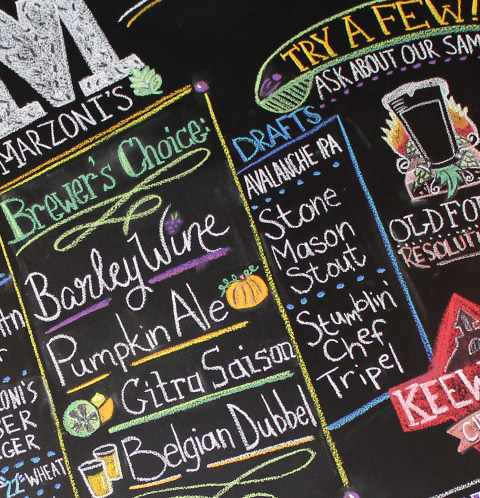 M
MARZONI'S
Brewer's Choice:
BarleyWine
Pumpkin Ale
Citra Saison
Belgian Dubbel
22" WHEAT
DRAFTS
AVALANCHE IPA
Stone
Mason
Stout
Stumblin'
Chef
Tripel
TRY A FEW!
ASK ABOUT OUR SAM
OLD FOR
RESOLUTI
KEEW